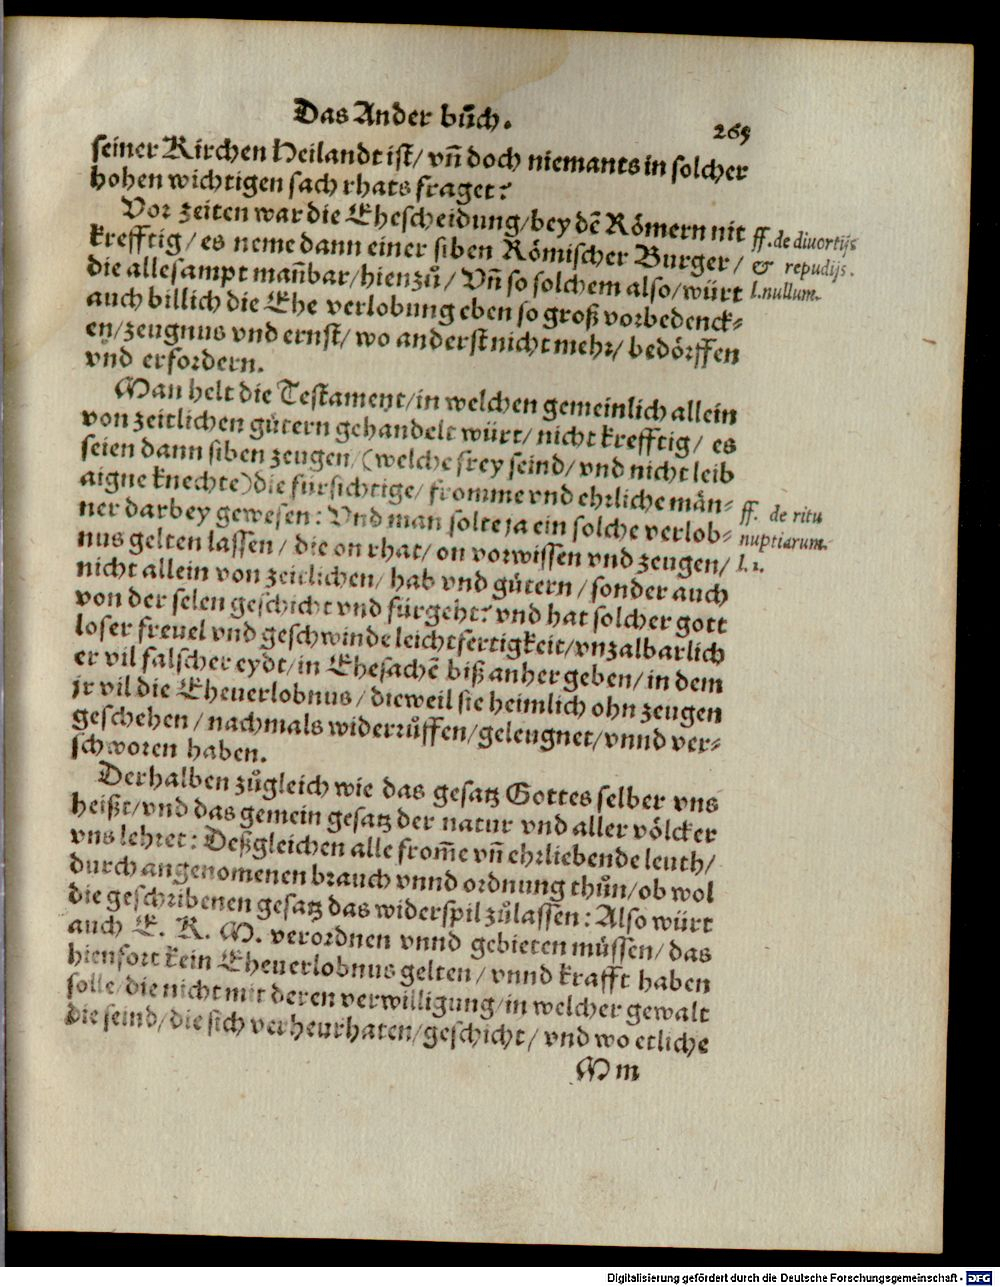 Das Ander bůch.
265
seiner Kirchen Heilandt ist/ vñ doch niemants in solcher
hohen wichtigen sach rhats fraget?
Vor zeiten war die Ehescheidung/ bey dẽ Römern nit
krefftig/ es neme dann einer siben Römischer Burger/
die allesampt mañbar/ hienzů/ Vñ so solchem also/ würt
auch billich die Ehe verlobung eben so groß vorbedenck⸗
en/ zeugnus vnd ernst/ wo anderst nicht mehr/ bedörffen
vnd erfordern.
ff. de diuortijs
& repudijs.
l. nullum.
Man helt die Testament/ in welchen gemeinlich allein
von zeitlichen gütern gehandelt würt/ nicht krefftig/ es
seien dann siben zeugen/ (welche frey seind/ vnd nicht leib
aigne knechte) die fürsichtige/ fromme vnd ehrliche män⸗
ner darbey gewesen: Vnd man solte ja ein solche verlob⸗
nus gelten lassen/ die on rhat/ on vorwissen vnd zeugen/
nicht allein von zeitlichen/ hab vnd gütern/ sonder auch
von der selen geschicht vnd fürgeht? vnd hat solcher gott
loser freuel vnd geschwinde leichtfertigkeit/ vnzalbarlich
er vil falscher eydt/ in Ehesachẽ biß anher geben/ in dem
jr vil die Eheuerlobnus/ dieweil sie heimlich ohn zeugen
geschehen/ nachmals widerrůffen/ geleugnet/ vnnd ver⸗
schworen haben.
ff. de ritu
nuptiarum.
l. 1.
Derhalben zůgleich wie das gesatz Gottes selber vns
heißt/ vnd das gemein gesatz der natur vnd aller völcker
vns lehret: Deßgleichen alle from̃e vñ ehrliebende leuth/
durch angenomenen brauch vnnd ordnung thůn/ ob wol
die geschribenen gesatz das widerspil zůlassen: Also würt
auch E. K. M. verordnen vnnd gebieten müssen/ das
hienfort kein Eheuerlobnus gelten/ vnnd krafft haben
solle/ die nicht mit deren verwilligung/ in welcher gewalt
die seind/ die sich verheurhaten/ geschicht/ vnd wo etliche
M m
Digitalisierung gefördert durch die Deutsche Forschungsgemeinschaft - DFG